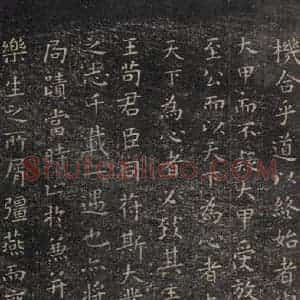 機合乎道以終始者
大甲而不疑大甲受放
至公而以天下為心者
天下為心者必致其主
王苟君臣同符斯大業
之志千載一遇也亦將
局蹟當時止於兼并
樂生之所屑彊燕而廢
Shufaziliao.com